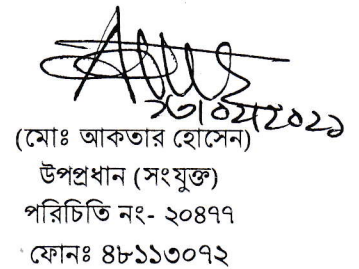 (মোঃ আকতার হোসেন)
উপপ্রধান (সংযুক্ত)
পরিচিতি নং- ২০৪৭৭
ফোনঃ ৪৮১১৩০৭২